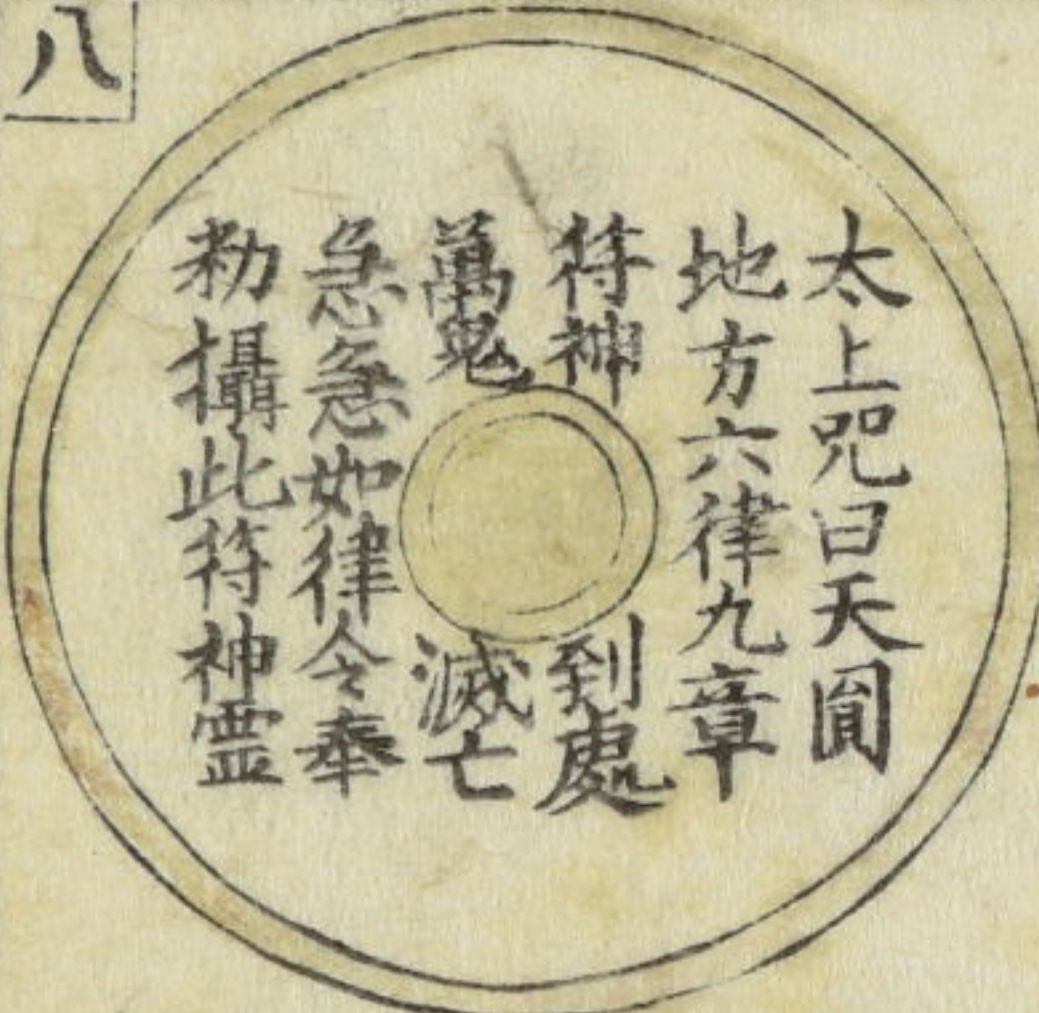 八
太上咒曰天圎
地方六律九章
符神到處
萬鬼滅亡
急急如律令奉
勑攝此符神霊